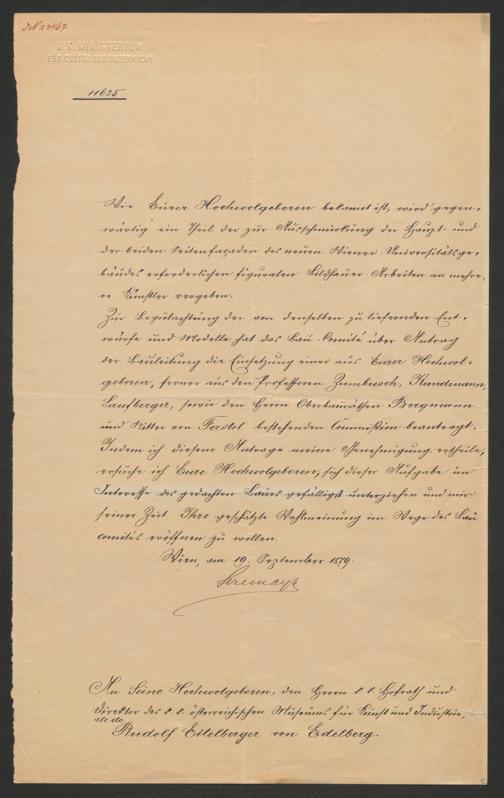 K. K. MINISTERIUM
FÜR CULTUS UND UNTERRICHT
11625
Wie Eurer Hochwolgeboren bekannt ist, wird gegen-
wärtig ein Theil der zur Ausschmückung der Haupt- und
der beiden Seitenfaçaden des neuen Wiener Universitätsge-
bäudes erforderlichen figuralen Bildhauer-Arbeiten an mehre-
re Künstler vergeben.
Zur Begutachtung der von denselben zu liefernden Ent-
würfe und Modelle hat das Bau-Comité über Antrag
der Bauleitung die Einsetzung einer aus Eurer Hochwol-
geboren, ferner aus den Professoren Zumbusch, Kundmann,
Laufberger, sowie den Herrn Oberbauräthen Bergmann
und Ritter von Ferstel bestehenden Commission beantragt.
Indem ich diesem Antrage meine Genehmigung ertheile,
ersuche ich Eure Hochwolgeboren, sich dieser Aufgabe im
Interesse des gedachten Baues gefälligst unterziehen und mir
seiner Zeit Ihre geschätzte Wohlmeinung im Wege des Bau
comités eröffnen zu wollen.
Wien, am 19. September 1879.
Stremayr
An Seine Hochwolgeboren, den Herrn k. k. Hofrath und
Direktor des k. k. österreichischen Museums für Kunst und Industrie,
etc. etc.
Rudolf Eitelberger von Edelberg.